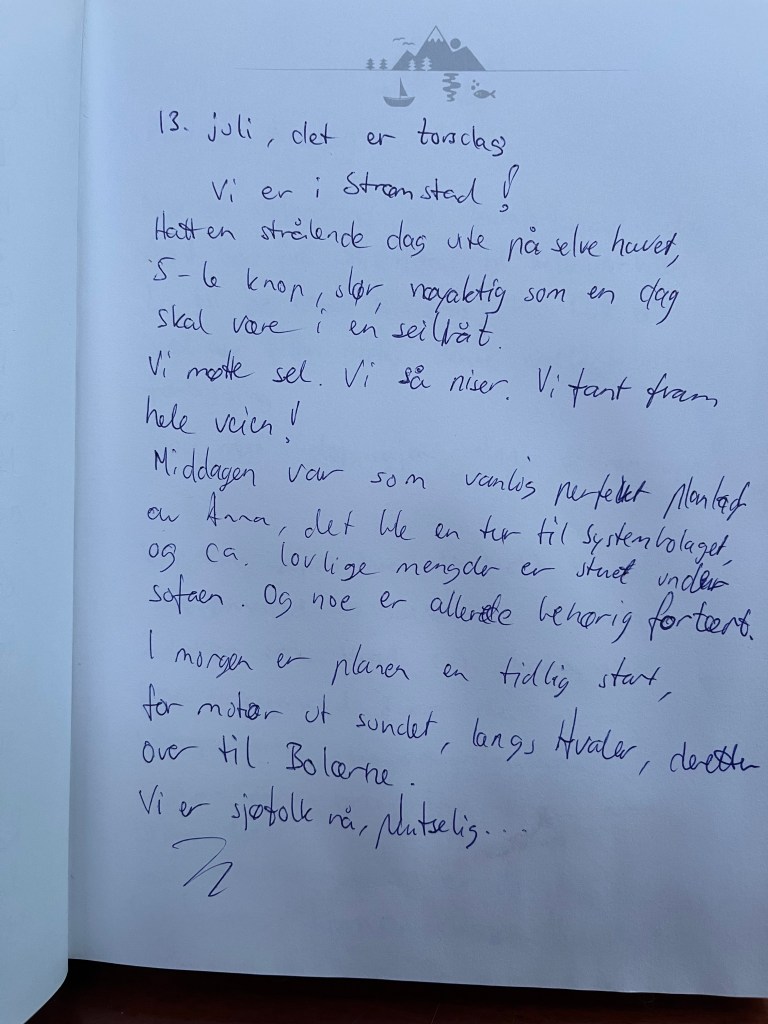 13. juli, det er torsdag
Vi er i Strømstad!
Hatt en strålende dag ute på selve havet,
5-6 knop, slør, nøyaktig som en dag
skal være i en seilbåt.
Vi møtte sel. Vi så niser. Vi fant fram
hele veien!
Middagen var som vanlig perfekt planlagt
av Anna, det ble en tur til Systembolaget,
og ca. lovlige mengder er stuet under
sofaen. Og noe er allerede behørig fortært.
I morgen er planen en tidlig start,
for motor ut sundet, langs Hvaler, deretter
over til Bolærne.
Vi er sjøfolk nå, plutselig...